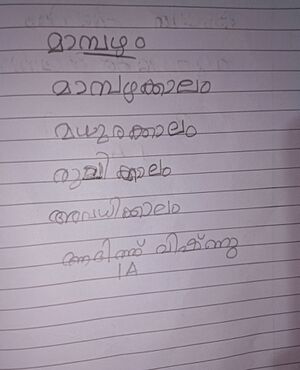 മാമ്പഴം
മാമ്പഴക്കാലം
മധുരക്കാലം
രുചിക്കാലം
അവധിക്കാലം
ആദിത്ത് വിഷ്ണു
1A